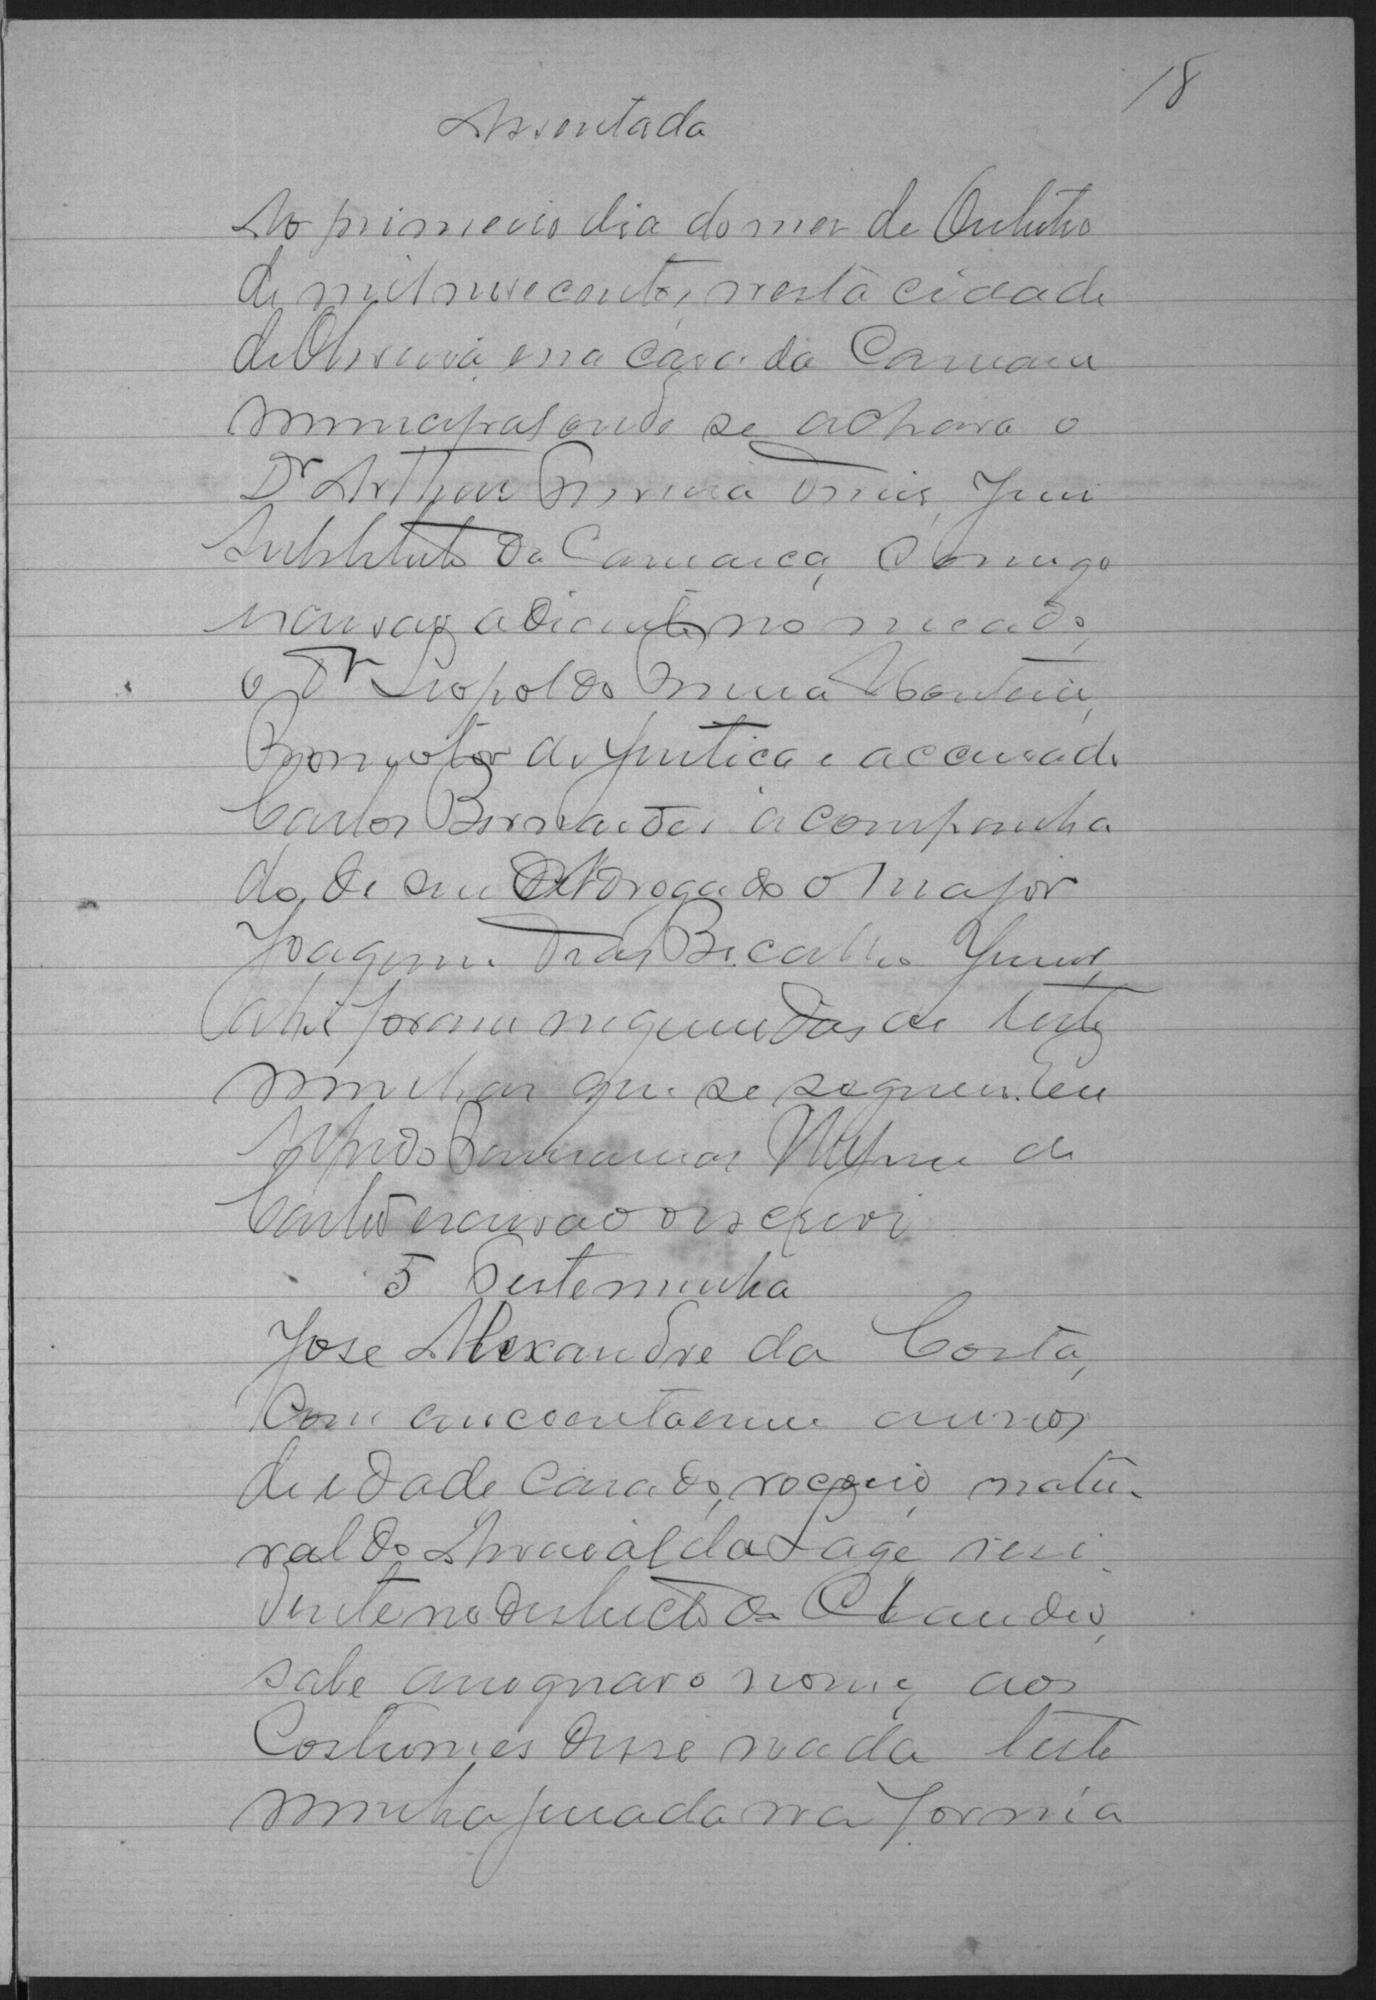 18
Assentada
Ao primeiro dia do mez de Outubro
de mil nove centos, nesta cidade
de Oliveira, em a casa da Camara
Municipal onde se achava o
Dr Arthur Diniz, Juiz
Substituto da Comarca, Comigo
escrivão adiante nomeado,
o Dr Leopoldo Monteiro,
Promotor de Justica e accusado
Carlos Bernardes acompanha
do de seu Advogado o Major
Joaquim Dias Bicalho Junior,
ahi foram inqueridas as teste
munhas que se seguem. Eu
Alfredo de
Castro escrivão o escrevi
5 Testemunha
Jose Alexandre da Costa,
Com cincoenta e um annos
de idade casado, roceiro, natu-
ral do Arraial da Lage resi
dente no destricto do Claudio,
sabe assignar o nome, aos
Costumes disse nada teste
munha jurada na forma